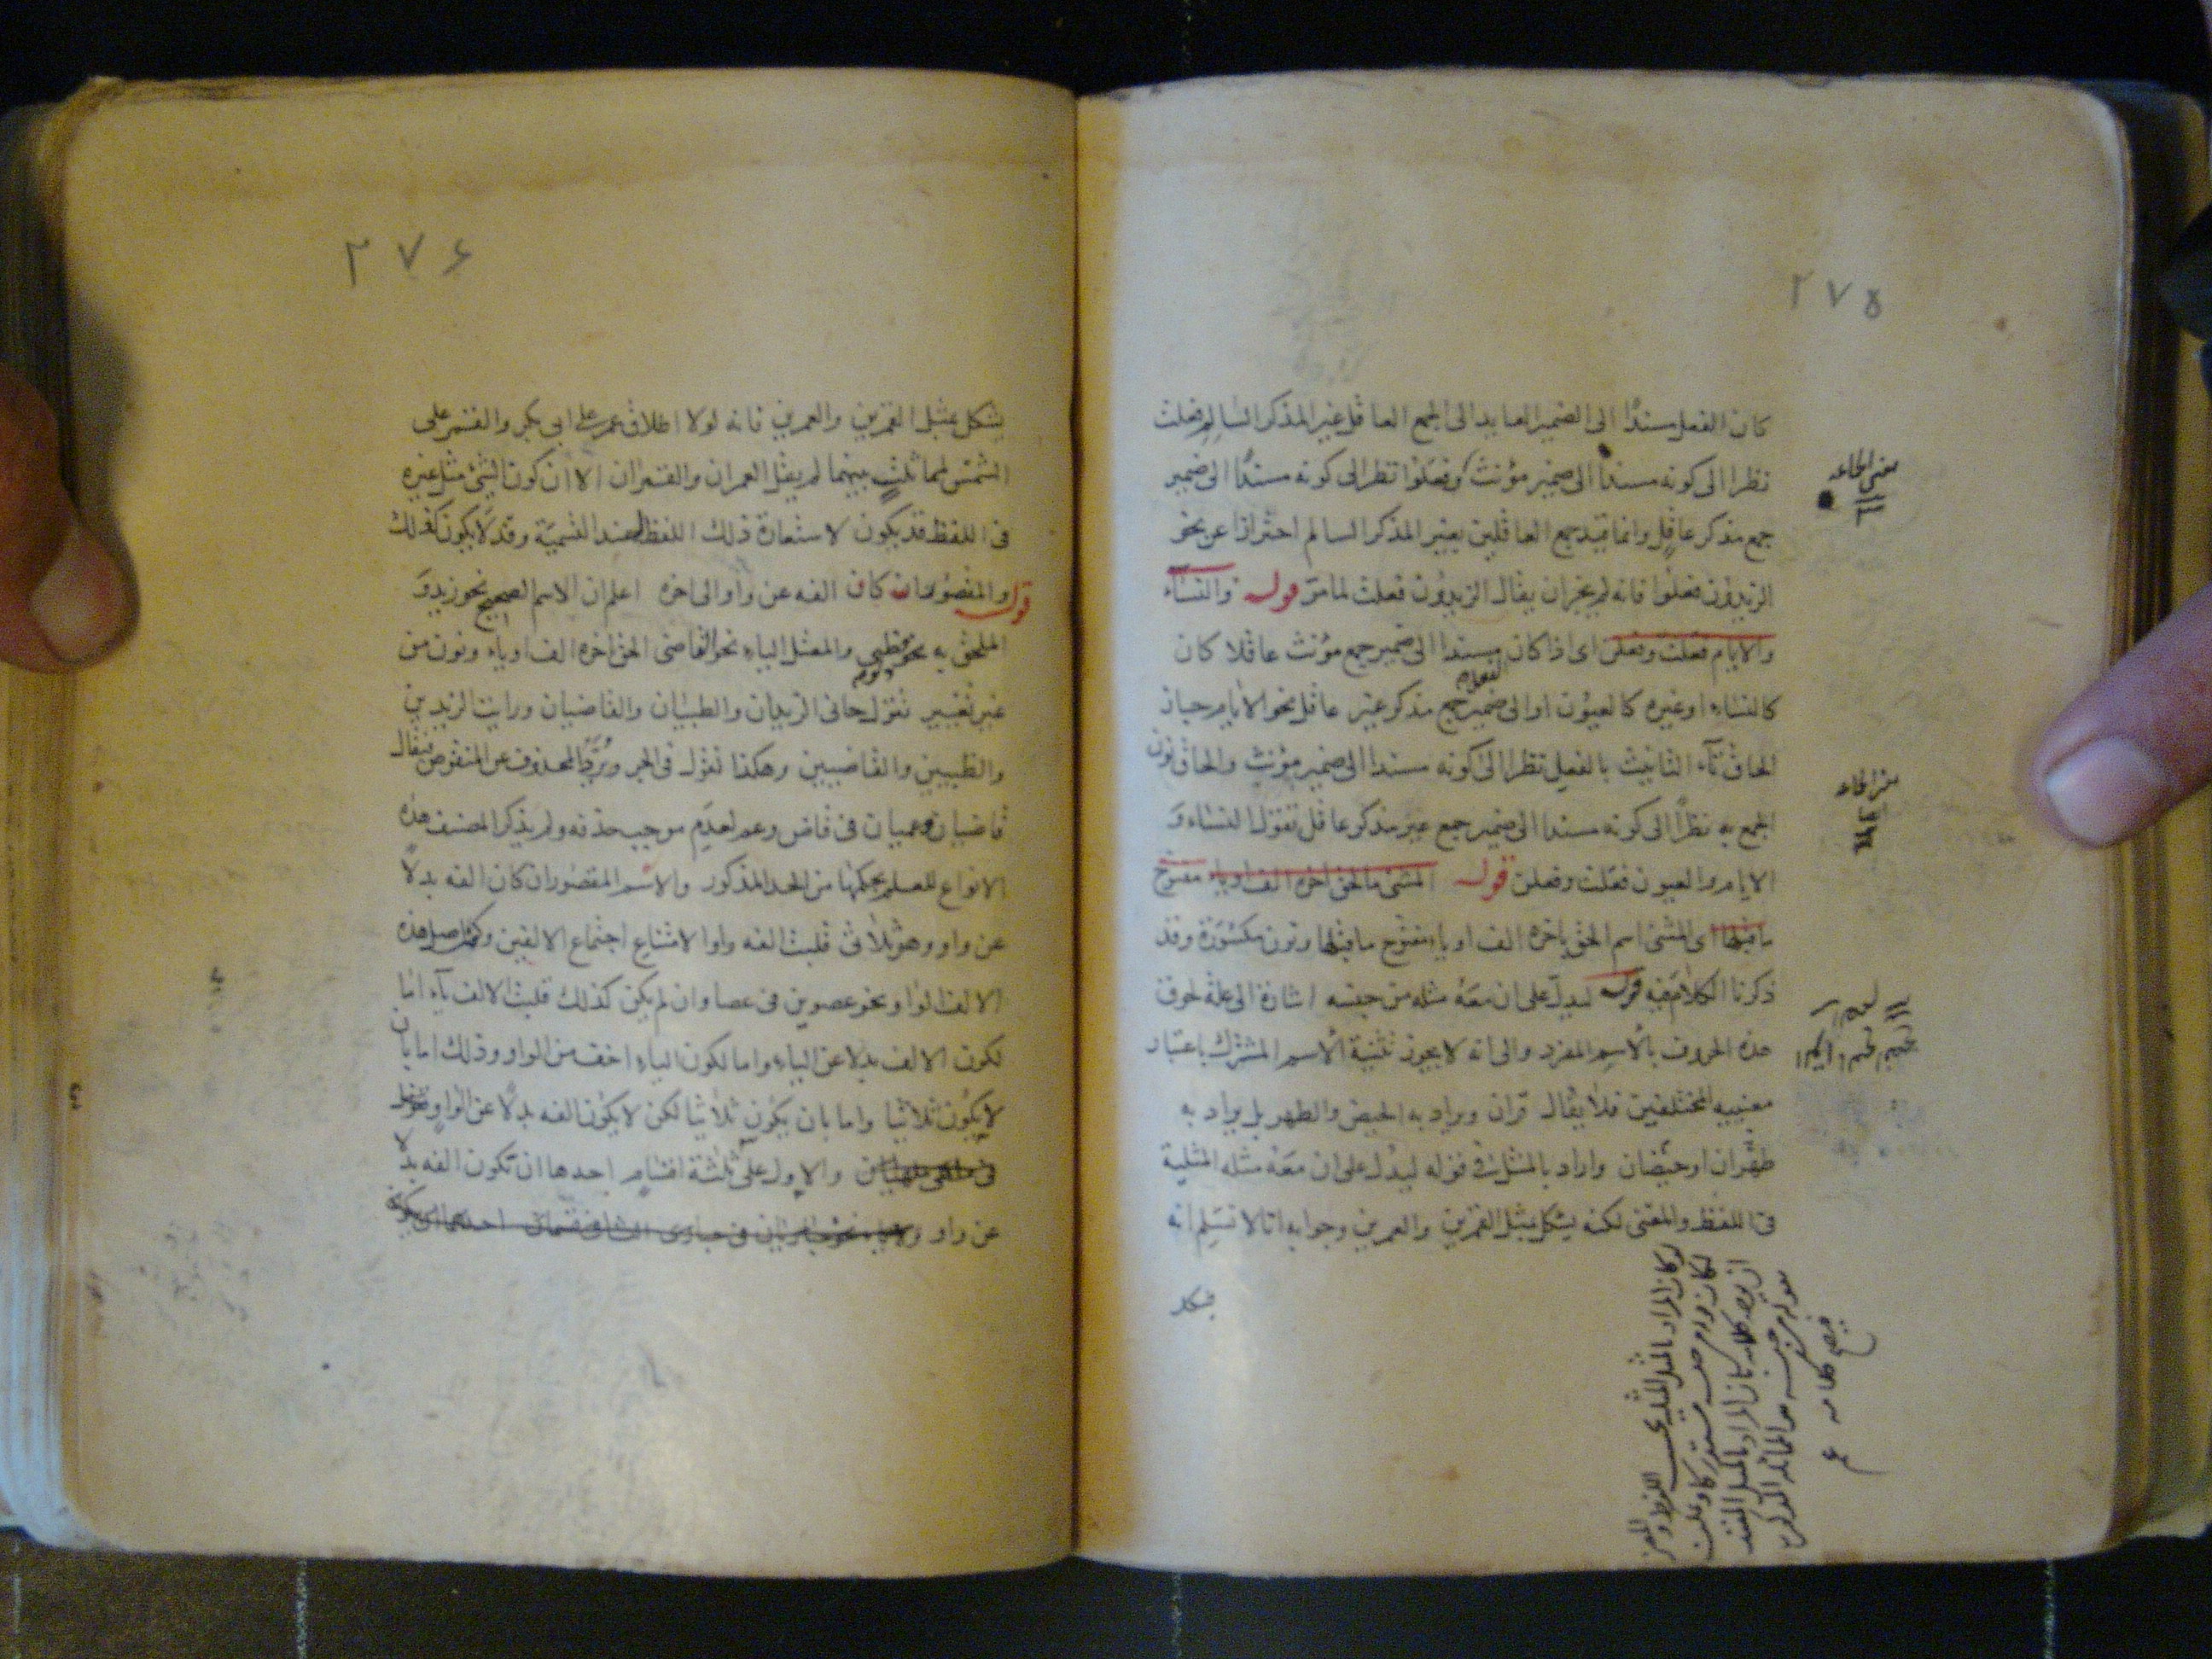 ٢٧٥
كان الفعل مسندًا الى الضمير العايد الى الجمع العاقل غير المذكر السالم فعلت
نظرا الى كونه مسندا الى ضمير مؤنث وفعلوا نظر الى كونه مسندًا الى ضمير
جمع مذكر عاقل وانما قيد جمع العاقلين بغير المذكر السالم احترازا عن نحو
الزيدون فعلوا فانه لم يجز ان يقال الزيدون فعلت لما مرّ قوله والنساء
والايام فعلت وفعلن اى اذا كان مسندا الى ضمير جمع مؤنث عاقلا كان
كالنساء او غيره كالعيون او الى ضمير جمع مذكر غير عاقل نحو الايام جاز
الحاق تاء التانيث بالفعل نظرا الى كونه مسندا الى ضمير مؤنث والحاق نون
الجمع به نظرًا الى كونه مسندا الى ضمير جمع غير مذكر عاقل تقول النساء وَ
الايام والعيون فعلت وفعلن قوله المثنى ما لحق اخره الف او ياء مفتوح
ما قبلها اى المثنى اسم الحق باخره الف او ياء مفتوح ما قبلها ونون مكسورة وقد
ذكرنا الكلام فيه قوله ليدل على ان معه مثله من جنسه اشارة الى علة لحوق
هذه الحروف بالاسم المفرد والى انه لا يجوز تثنية الاسم المشترك باعتبار
معنييه المختلفين فلا يقال قرآن ويراد به الحيض والطهر بل يراد به
طهران او حيضان واراد بالمثل فى قوله ليدل على ان معه مثله المثلية
فى اللفظ والمعنى لكنه يشكل بمثل القمرين والعمرين وجوابه انا لا نسلم انه
يشكل
٢٧۶
يشكل بمثل القمرين والعمرين فانه لولا اطلاق عمر على ابى بكر والقمر على
الشمس لمماثلت بينهما لم يقل العمران والقمران الا ان كون الشئ مثل غيره
فى اللفظ قد يكون لاستعارة ذلك اللفظ عند التسمية وقد لا يكون كذلك
قوله والمقصور ان كان الفه عن واو الى اخره اعلم ان الاسم الصحيح نحو زيد وَ
الملحق به نحو ظبى والمعتل الياء نحو القاضى الحق اخره الف او ياء ونون من
غير تغيير تقول جانى الزيدان والظبيان والقاضيان ورايت الزيدين
والظبيين والقاضيين وهكذا تقول فى الجر ويُرَدّ المحذوف عن المنقوص فيقال
قاضيان وعميان فى قاض وعم لعدم موجب حذفه ولم يذكر المصنف هذه
الانواع للعلم بحكمها من الحد المذكور والاسم المقصور ان كان الفه بدلًا
عن واو وهو ثلاثى قلبت الفه واوا لامتناع اجتماع الالفين وكون اصل هذه
الالف الواو نحو عصوين فى عصا وان لم يكن كذلك قلبت الالف ياء اما
لكون الالف بدلا عن الياء واما لكون الياء اخف من الواو وذلك اما بان
لا يكون ثلاثيا واما بان يكون ثلاثيا لكن لا يكون الفه بدلًا عن الواو
والاول على ثلثة اقسام احدها ان تكون الفه بدلا
عن واو